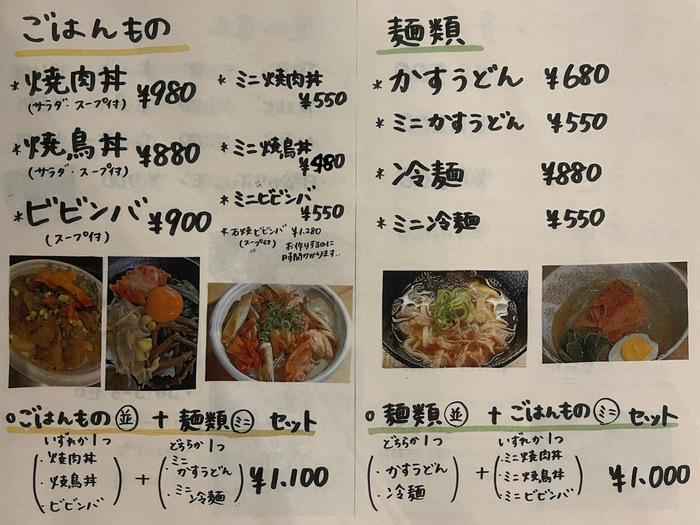 ごはんもの
*焼肉丼 ¥980
(サラダ・スープ付)
*焼鳥丼 ¥880
(サラダ・スープ付)
*ビビンバ ¥900
(スープ付)
*ミニ焼肉丼
¥550
*ミニ焼鳥丼
¥480
*ミニビビンバ
¥550
*石焼ビビンバ ¥1,280
(スープ付)
お作りするのに
時間がかります。
○ごはんもの(並)+麺類(ミニ)セット
いずれか1つ
・焼肉丼
・焼鳥丼
・ビビンバ
+
どちらか1つ
・ミニ
かすうどん
・ミニ
冷麺
¥1,100
麺類
*かすうどん ¥680
*ミニかすうどん ¥550
*冷麺 ¥880
*ミニ冷麺 ¥550
○麺類(並)+ごはんもの(ミニ)セット
どちらか1つ
・かすうどん
・冷麺
+
いずれか1つ
・ミニ焼肉丼
・ミニ焼鳥丼
・ミニビビンバ
¥1,000